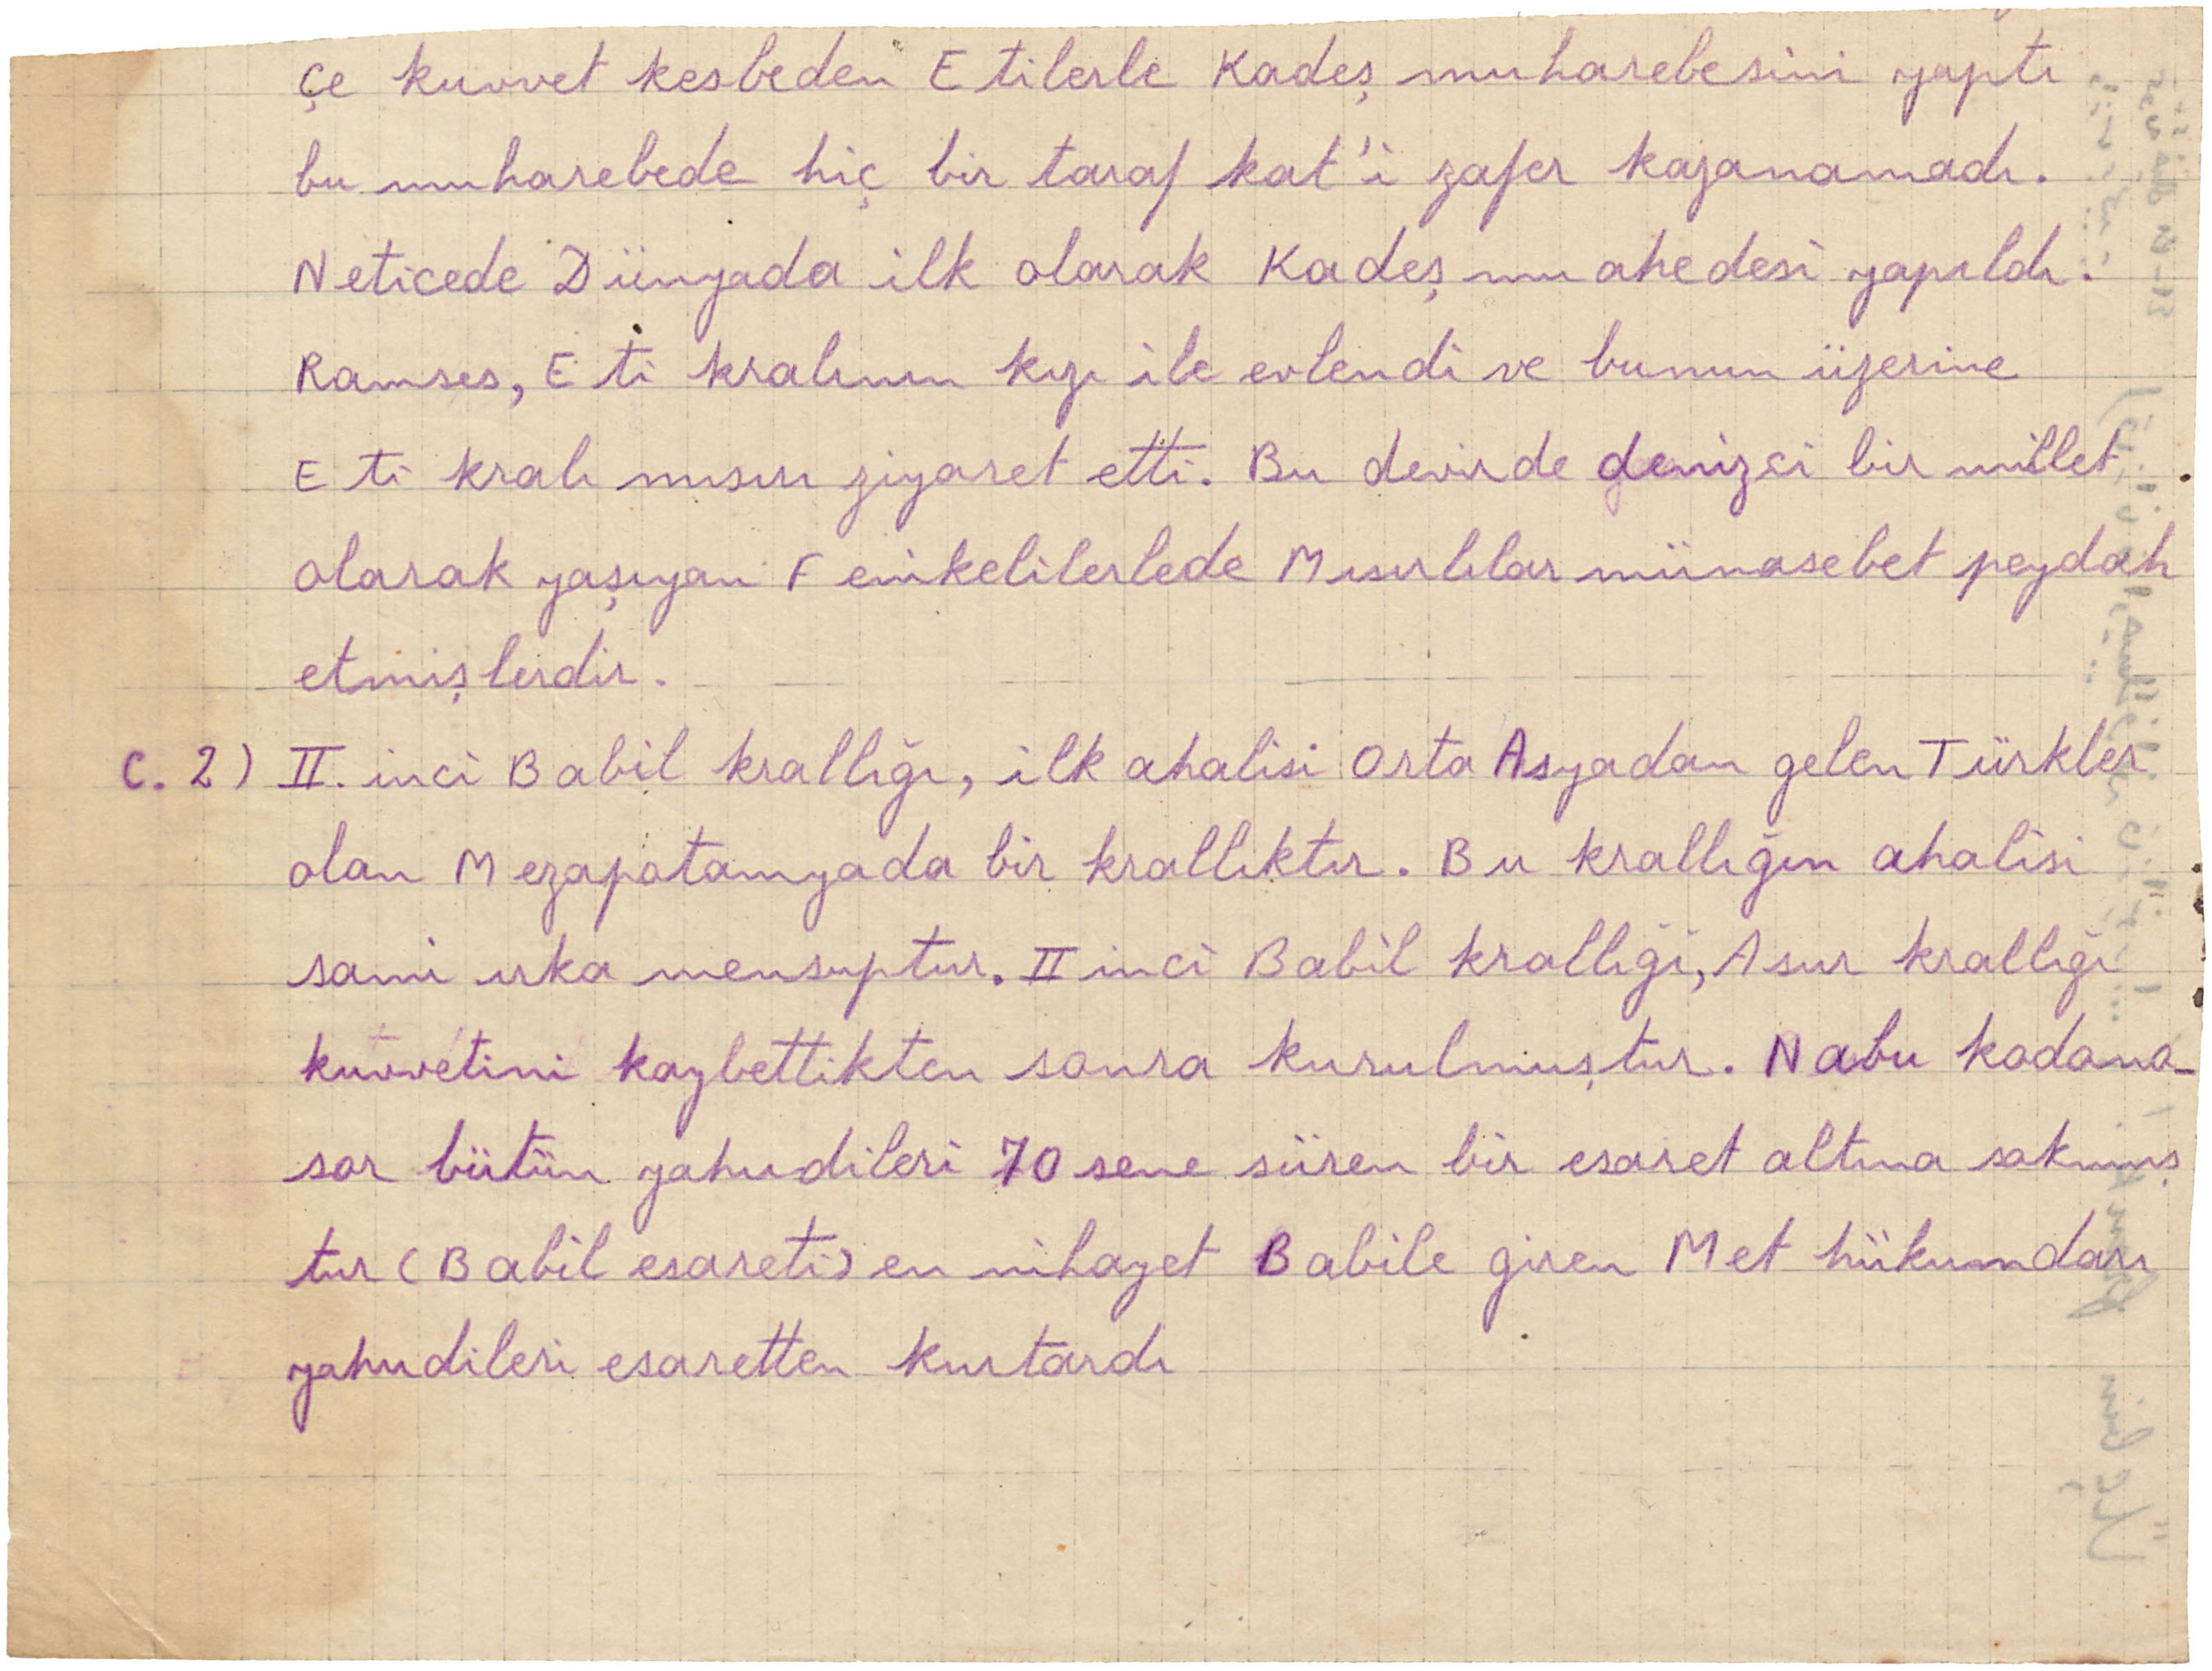 çe kuvvet kesbeden Etilerle Kadeş muharebesini yaptı
bu muharebede hiç bir taraf kat'i zafer kazanamadı.
Neticede Dünyada ilk olarak Kadeş muahedesi yapıldı.
Ramses, Eti kralının kızı ile evlendi ve bunun üzerine
Eti kralı mısırı ziyaret etti. Bu devirde denizci bir millet
olarak yaşıyan Fenikelilerlede Mısırlılar münasebet peydah
etmişlerdir.
C. 2) II. inci Babil krallığı, ilk ahalisi Orta Asyadan gelen Türkler
olan Mezapotamyada bir krallıktır. Bu krallığın ahalisi
sami ırka mensuptur. II inci Babil krallıği, Asur krallığı
kuvvetini kaybettikten sonra kurulmuştur. Nabu kodona-
sor bütün yahudileri 70 sene süren bir esaret altına sokmuş
tur (Babil esareti) en nihayet Babile giren Met hükumdarı
yahudileri esaretten kurtardı